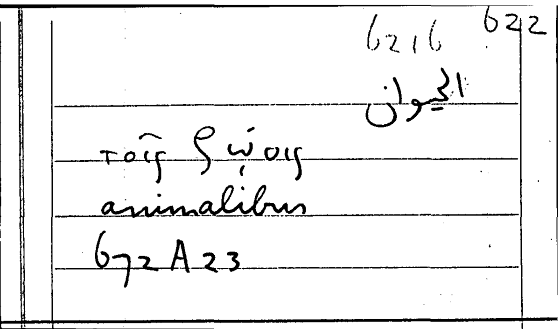 6216 622
الحيوان
τοῖς ζῴοις
animalibus
672 A 23